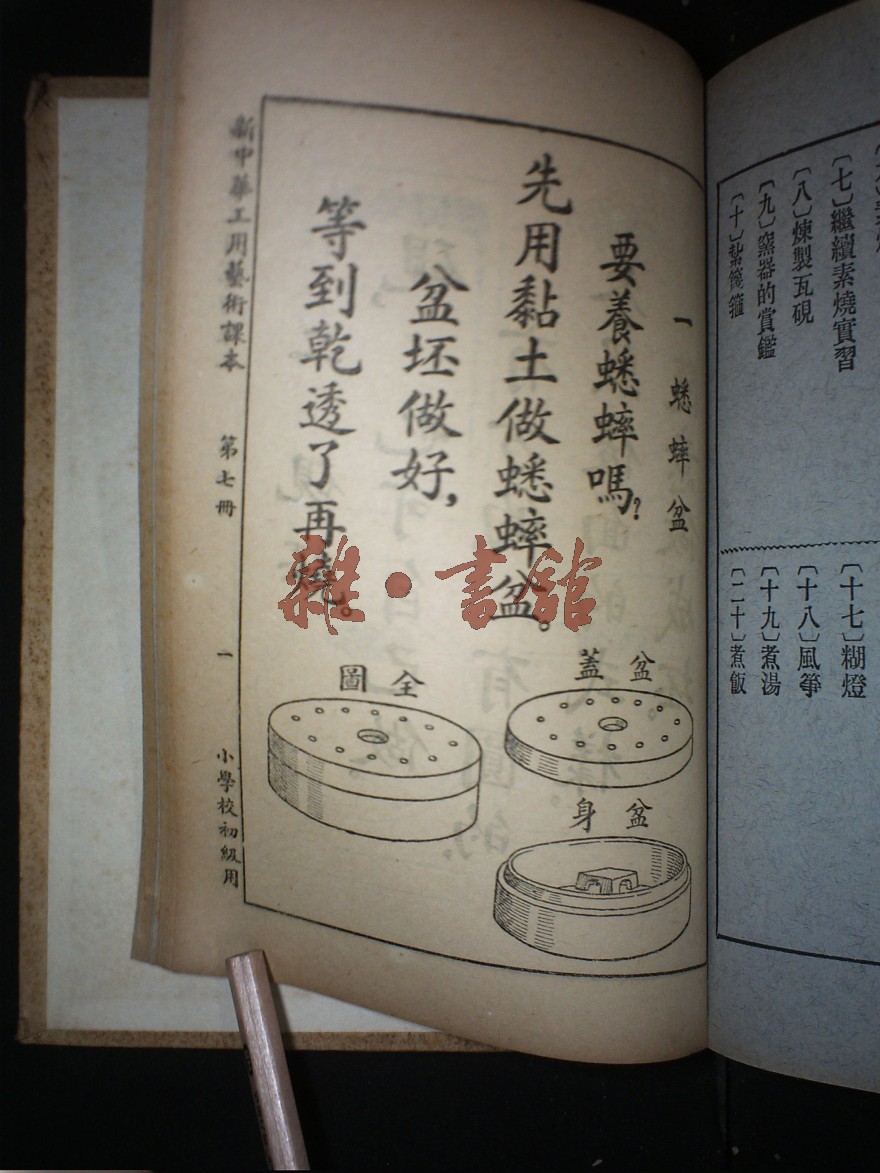 〔七〕繼續素燒實習
〔八〕煉製瓦硯
〔九〕窯器的賞鑑
〔十〕紮箋箍
〔十七〕糊燈
〔十八〕風箏
〔十九〕煮湯
〔二十〕煮飯
一 蟋蟀盆
要養蟋蟀嗎?
先用黏土做蟋蟀盆。
盆坯做好,
等到乾透了再燒。
盆蓋
盆身
全圖
新中華工用藝術課本 第七冊 一 小學校初級用
雜·書館